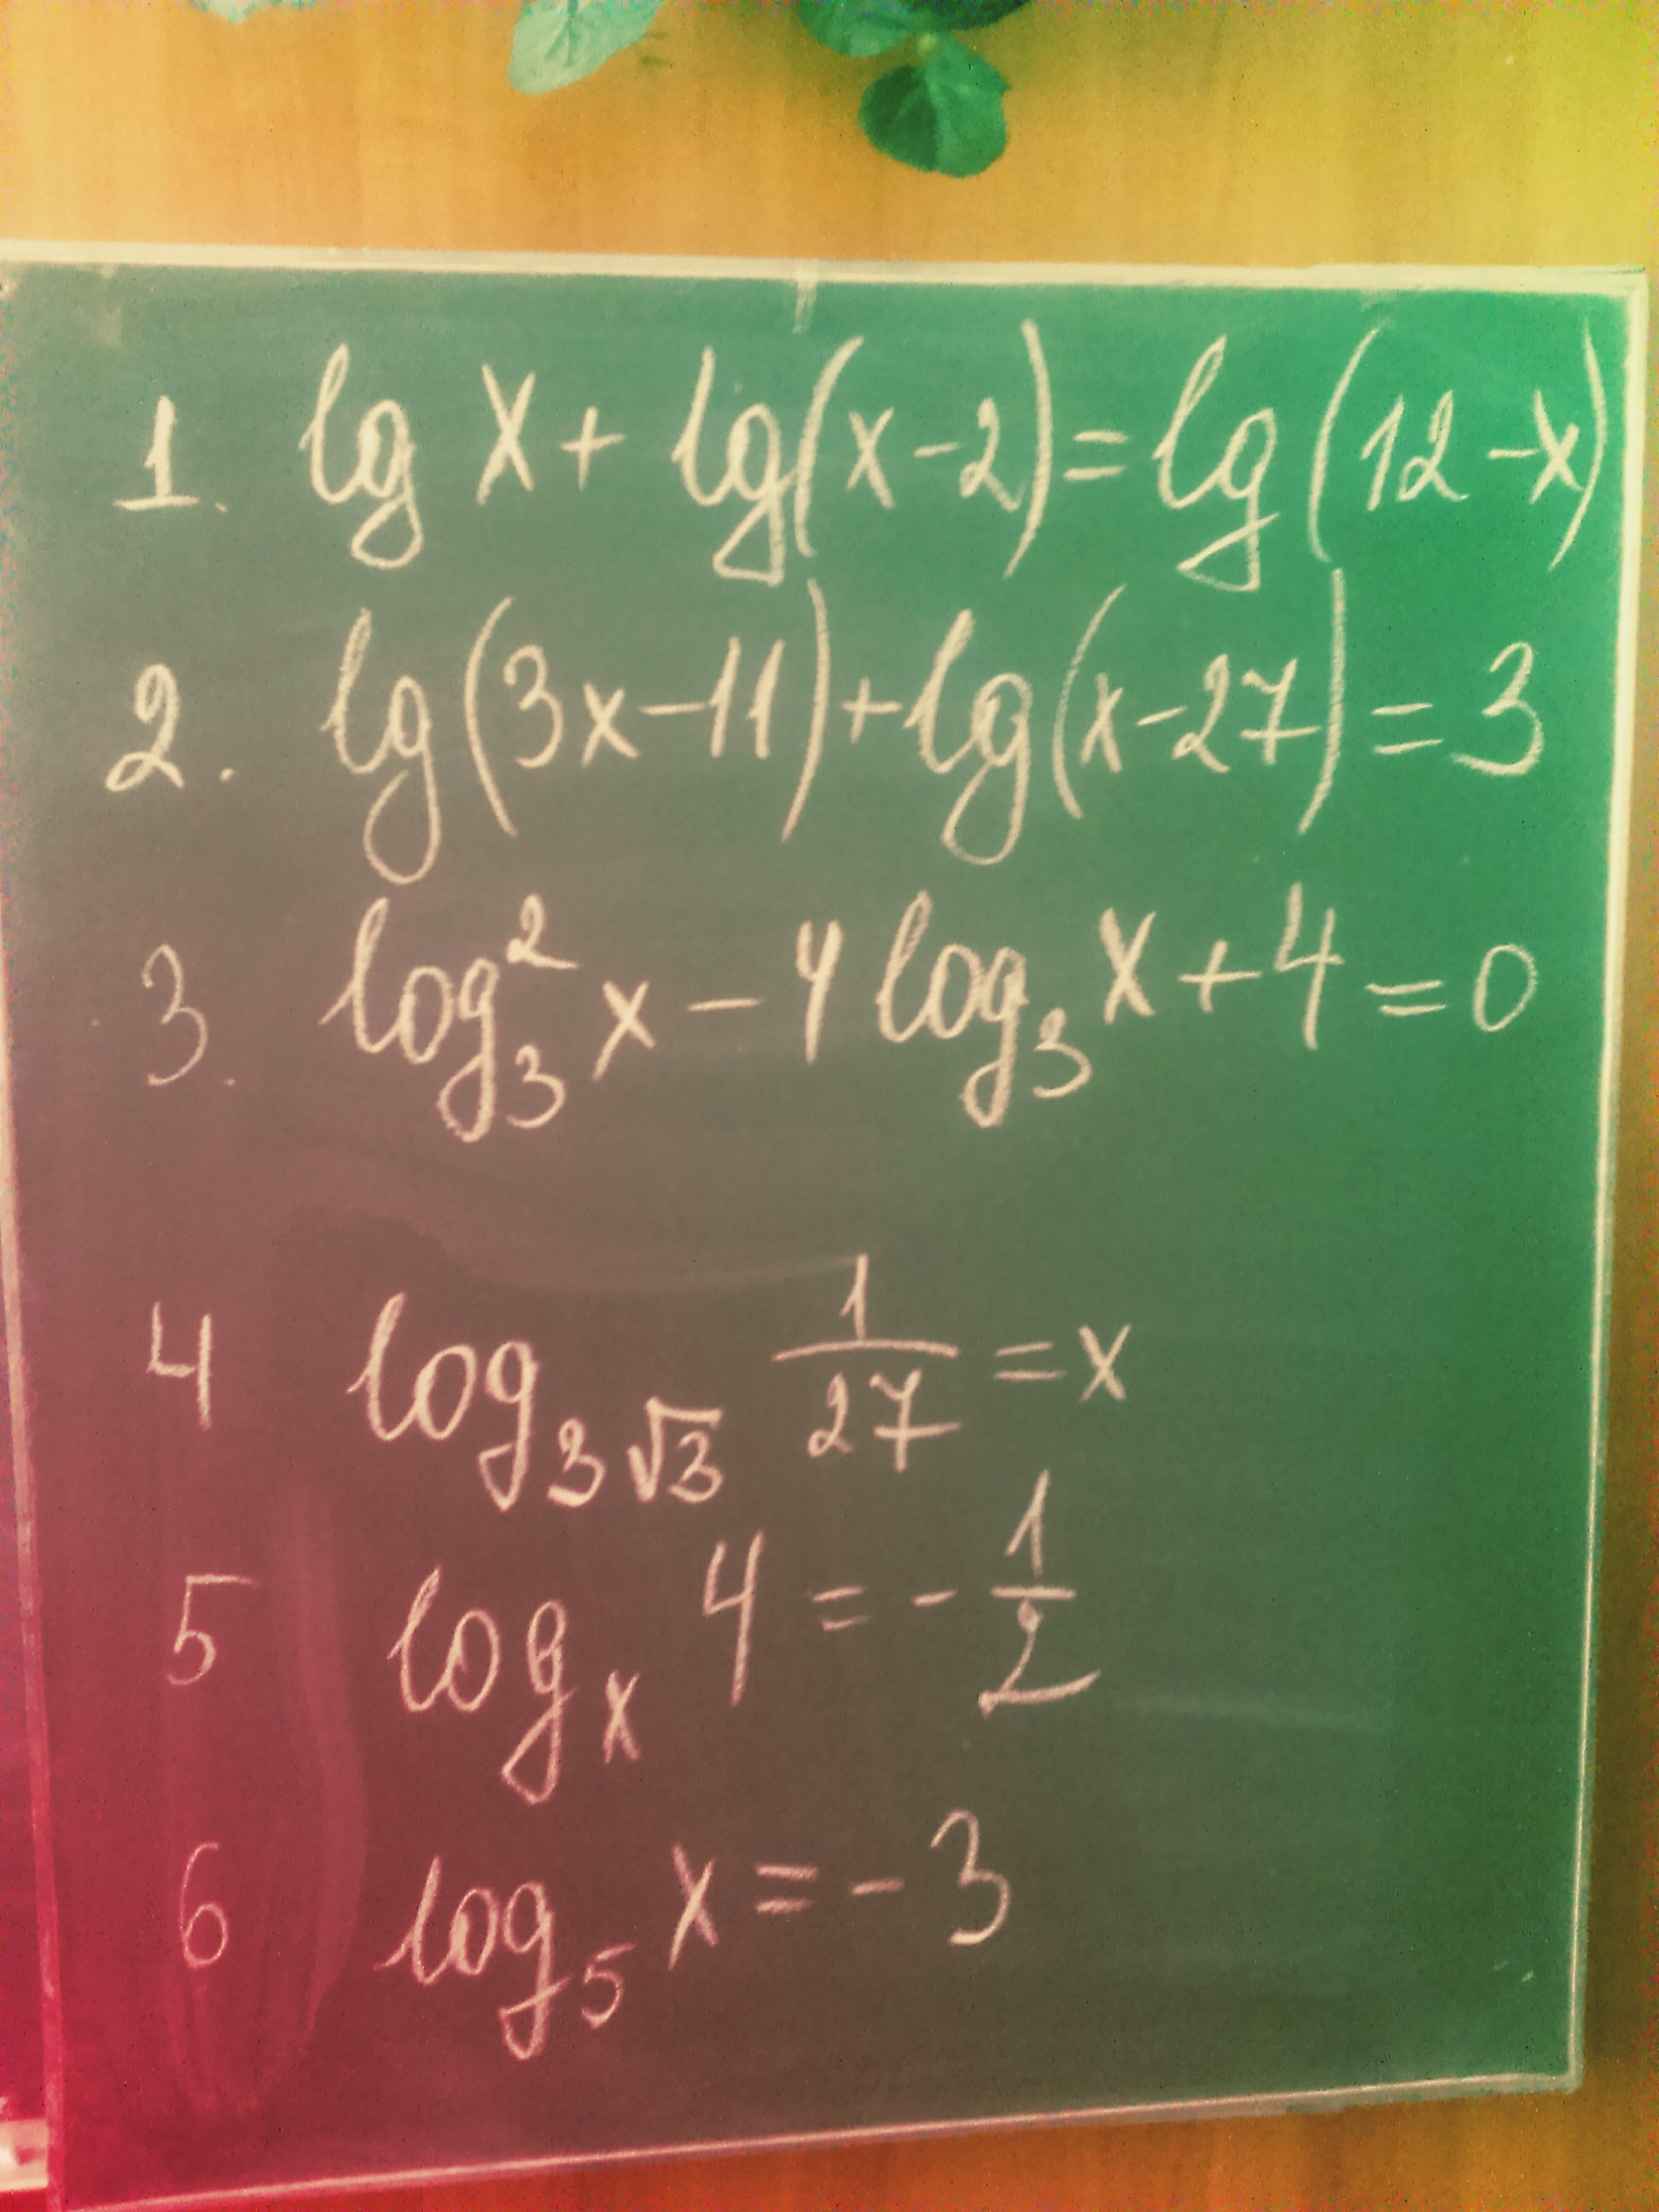 1. lg x + lg(x-2) = lg(12-x)
2. lg(3x-11) + lg(x-27) = 3
3. log₃² x - 4 log₃ x + 4 = 0
4 log_{3√3} 1/27 = x
5 log_x 4 = - 1/2
6 log₅ x = - 3